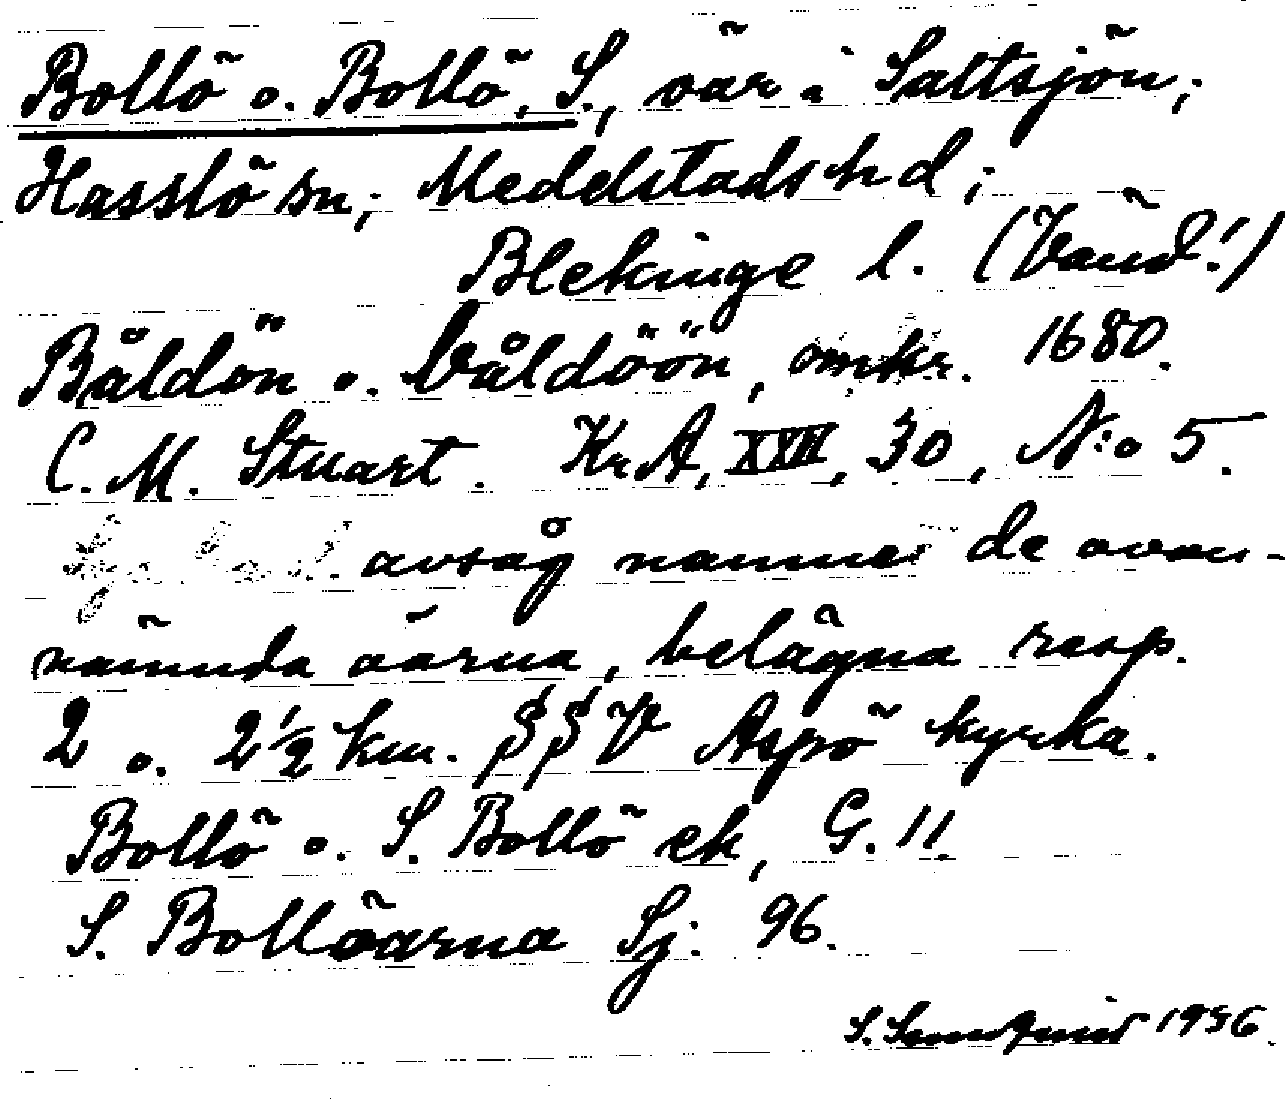 Bollö o. Bollö, S., öar i Saltsjön;
Hasslö sn; Medelstads hd;
Blekinge l. (Vänd!)
Båldön o. Båldöön, omkr. 1680.
C. M. Stuart. KrA, XXII, 30, N:o 5.
avsåg namnen de ovan-
nämnda öarna, belägna resp.
2 o. 2 1/2 km. §§V Aspö kyrka.
Bollö o. S. Bollö ek, G. 11.
S. Bollöarna Sj: 96.
S. 1956.